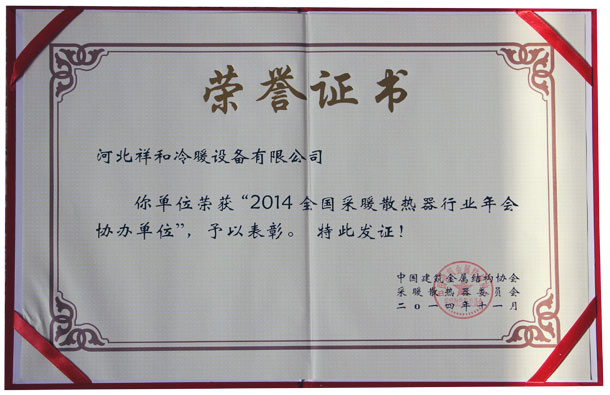 荣誉证书
河北祥和冷暖设备有限公司
你单位荣获“2014全国采暖散热器行业年会
协办单位”，予以表彰。 特此发证！
中国建筑金属结构协会
采暖散热器委员会
二〇一四年十一月